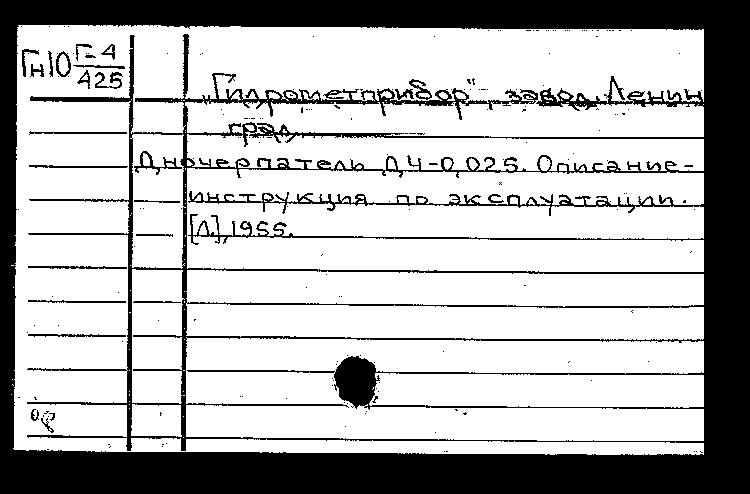 Гн10 Г-4
425
„Гидрометприбор", завод. Ленин
град.
Дночерпатель ДЧ-0,025. Описание-
инструкция по эксплуатации.
[Л.], 1955.